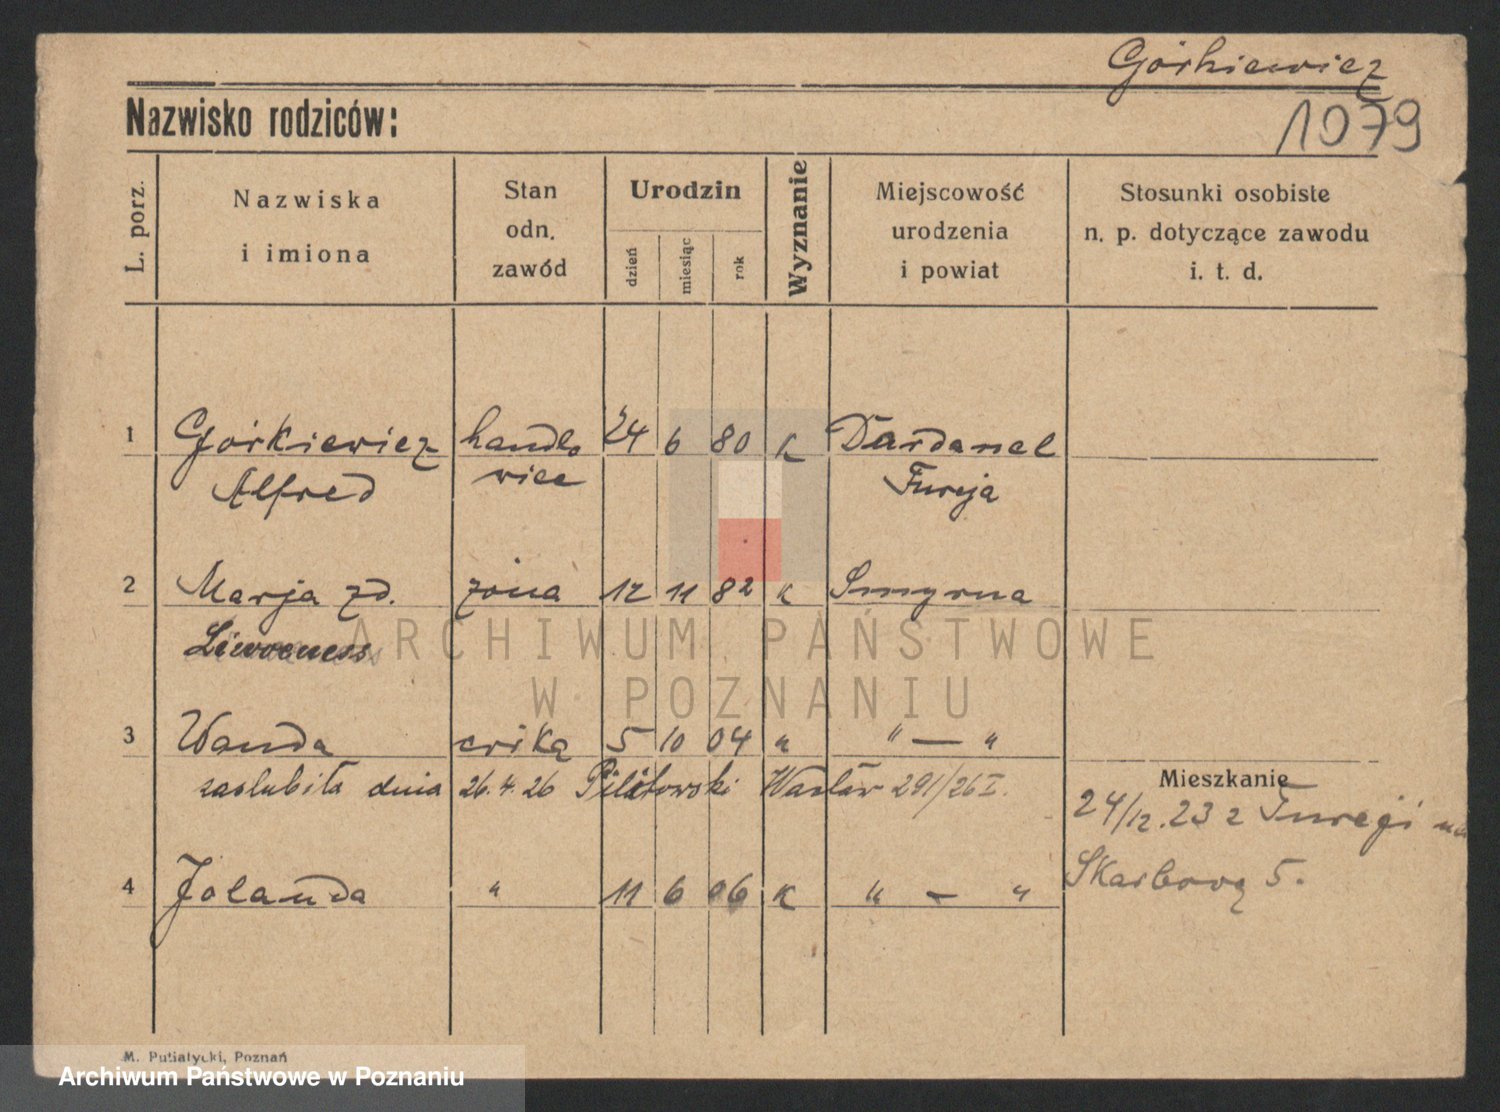 Górkiewicz
Nazwisko rodziców:
1079
L. porz.
Nazwiska
i imiona
Stan
odn.
zawód
Urodzin
dzień
miesiąc
rok
Wyznanie
Miejscowość
urodzenia
i powiat
Stosunki osobiste
n. p. dotyczące zawodu
i. t. d.
1 Górkiewicz handlo 24 6 80 k Dardanel
Alfred wiec Turcja
2 Marja zd. żona 12 11 82 k Smyrna
ARCHIWUM PAŃSTWOWE
W POZNANIU
3 Wanda crika 5 10 04 " " — "
zaślubiła dnia 26.4.26 Pilitowski Wacław 291/26 I.
Mieszkanie
24/12.23 z Turcji na
Skarbową 5.
4 Jolanda " 11 6 06 k " — "
M. Putiatycki, Poznań
Archiwum Państwowe w Poznaniu